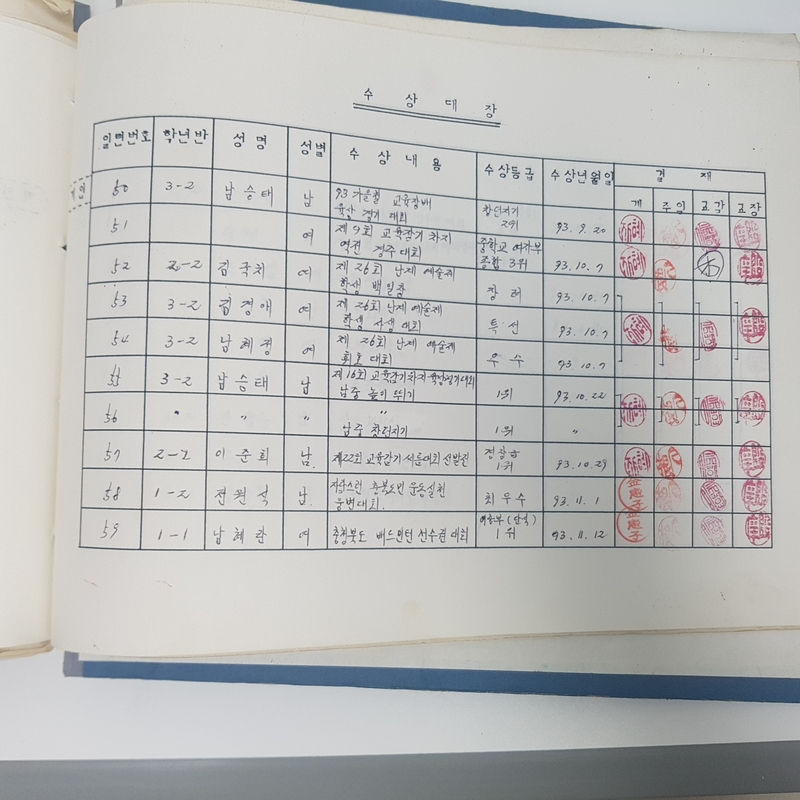 수 상 대 장
일련번호 학년반 성명 성별 수상내용 수상등급 수상년월일 결재
계 주임 교감 교장
50 3-2 남승태 남 93 가을철 교육장배 창던지기
육상경기 대회 2위 93. 9. 20
51 여 제9회 교육감기 차지 중학교 여자부
역전 경주대회 종합 3위 93. 10. 7
52 2-2 김국치 여 제26회 난계 예술제
학생 백일장 장려 93. 10. 7
53 3-2 김경애 여 제26회 난계 예술제
학생 사생대회 특선 93. 10. 7
54 3-2 남혜경 여 제26회 난계 예술제
휘호대회 우수 93. 10. 7
55 3-2 남승태 남 제16회 교육감기차지 육상경기대회
남중 높이뛰기 1위 93. 10. 22
56 " " " "
남중 창던지기 1위 "
57 2-2 이준희 남. 제22회 교육감기 씨름대회 선발전 경장급
1위 93. 10. 29
58 1-2 전원석 남. 자랑스런 충북도민 운동실천
웅변대회. 최우수 93. 11. 1
59 1-1 남혜란 여 충청북도 배드민턴 선수권 대회 여중부(단식)
1위 93. 11. 12